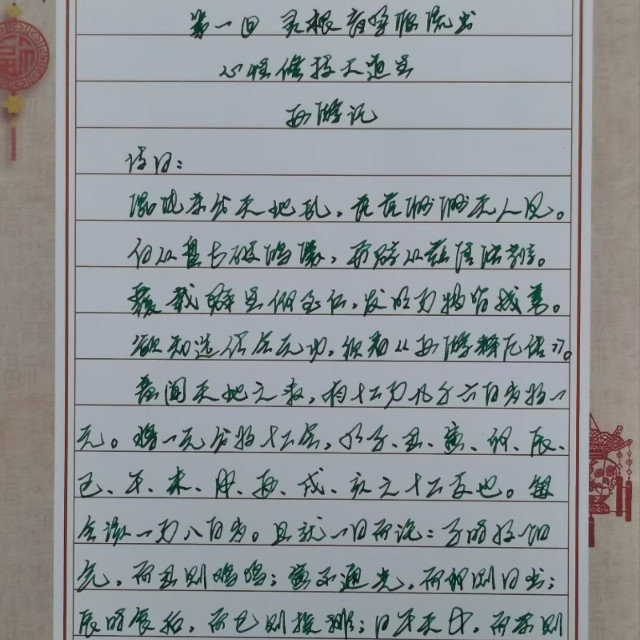 第一回 灵根育孕源流出
心性修持大道生
西游记
诗曰：
混沌未分天地乱，茫茫渺渺无人见。
自从盘古破鸿蒙，开辟从兹清浊辨。
覆载群生仰至仁，发明万物皆成善。
欲知造化会元功，须看西游释厄传。
盖闻天地之数，有十二万九千六百岁为一
元。将一元分为十二会，乃子、丑、寅、卯、辰、
巳、午、未、申、酉、戌、亥之十二支也。每
会该一万八百岁。且就一日而论：子时得阳
气，而丑则鸡鸣；寅不通光，而卯则日出；
辰时食后，而巳则挨排；日午天中，而未则